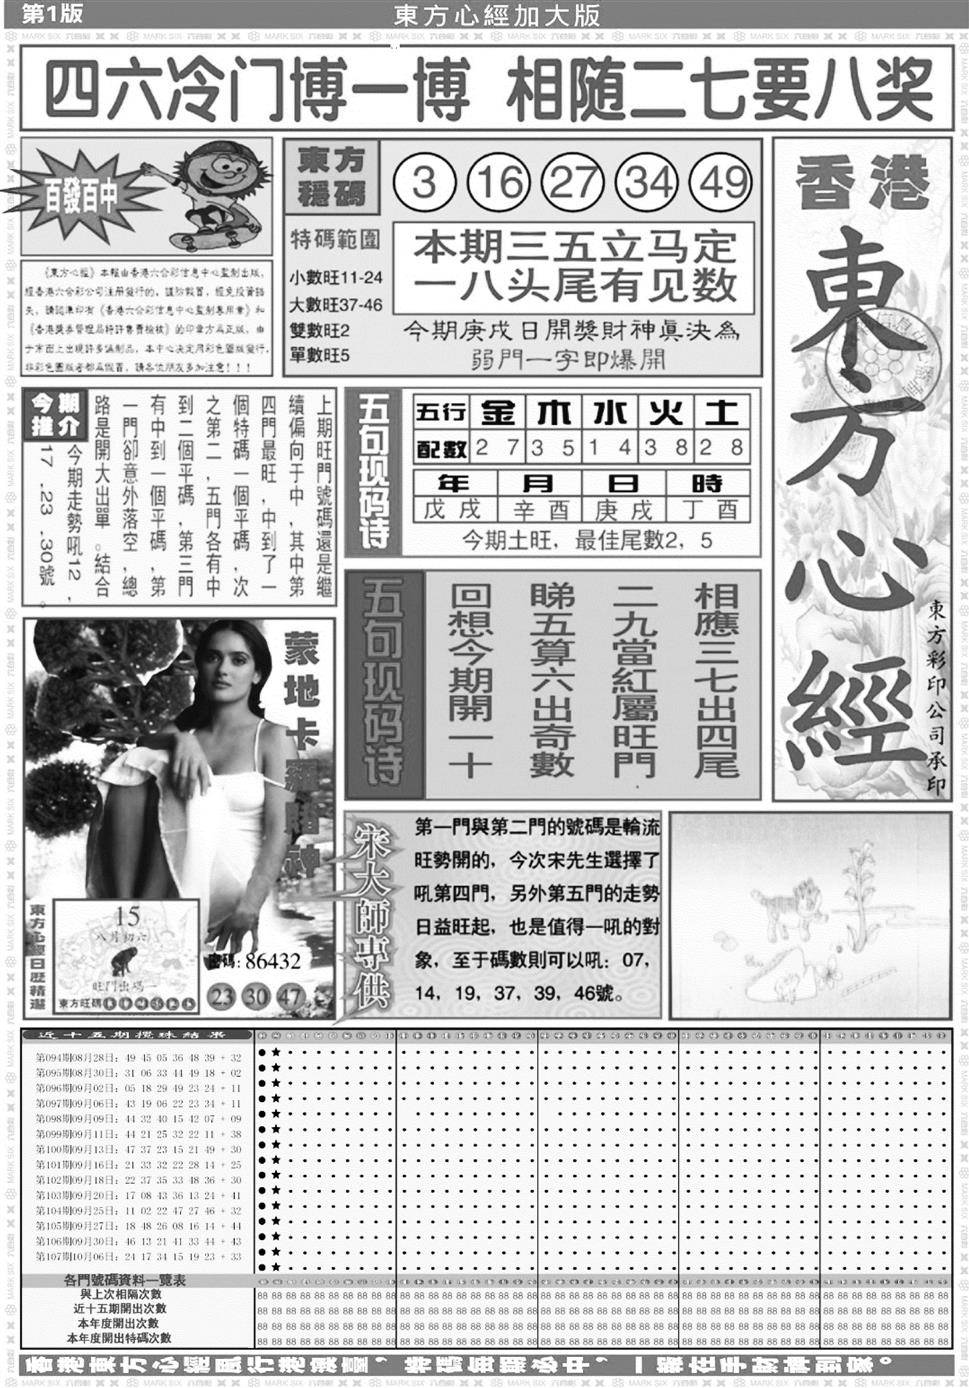 第1版
東方心經加大版
四六冷门博一博 相随二七要八奖
百發百中
《東方心經》本報由香港六合彩信息中心監制出版，
經香港六合彩公司注册發行的，謹防假冒，經免投資損
失，請認準印有《香港六合彩信息中心監制專用章》和
《香港獎券管理局特許售賣檢核》的印章方爲正版，由
于市面上出現許多僞制品，本中心决定用彩色圖版發行，
非彩色圖版者都爲假冒，請各位朋友多加注意！！！
東方
穩碼
3 16 27 34 49
特碼範圍
小數旺11-24
大數旺37-46
雙數旺2
單數旺5
本期三五立马定
一八头尾有见数
今期庚戌日開獎財神眞決為
弱門一字即爆開
香港
東方心經
東方彩印公司承印
今期
推介
上期旺門號碼還是繼
續偏向于中，其中第
四門最旺，中到了一
個特碼一個平碼，次
之第二，五門各有中
到二個平碼，第三門
有中到一個平碼，第
一門卻意外落空，總
路是開大出單。結合
今期走勢吼12，
17，23，30號。
五句现码诗
五行 金 木 水 火 土
配數 2 7 3 5 1 4 3 8 2 8
年 月 日 時
戊戌 辛酉 庚戌 丁酉
今期土旺，最佳尾數2，5
五句现码诗
相應三七出四尾
二九當紅屬旺門
睇五算六出奇數
回想今期開一十
蒙地卡羅賭神
東方心經日歷精選
15
八月初六
旺門出碼
東方旺碼
密碼：86432
23 30 47
宋大師專供
第一門與第二門的號碼是輪流
旺勢開的，今次宋先生選擇了
吼第四門，另外第五門的走勢
日益旺起，也是值得一吼的對
象，至于碼數則可以吼：07，
14，19，37，39，46號。
近十五期攪珠結果
第094期08月28日：49 45 05 36 48 39 + 32
第095期08月30日：31 06 33 44 49 18 + 02
第096期09月02日：05 18 29 49 23 24 + 11
第097期09月06日：43 19 06 22 23 34 + 11
第098期09月09日：44 32 40 15 42 07 + 09
第099期09月11日：44 21 25 32 22 11 + 38
第100期09月13日：47 37 23 15 21 49 + 30
第101期09月16日：21 33 32 22 28 14 + 25
第102期09月18日：22 37 35 33 48 36 + 30
第103期09月20日：17 08 43 36 13 24 + 41
第104期09月25日：11 02 22 47 27 46 + 32
第105期09月27日：18 48 26 08 16 14 + 44
第106期09月30日：46 13 21 41 33 44 + 43
第107期10月06日：24 17 34 15 19 23 + 33
各門號碼資料一覽表
與上次相隔次數
近十五期開出次數
本年度開出次數
本年度開出特碼次數
香港東方心經風行港澳臺，特碼每期必中，一報在手財神到家。